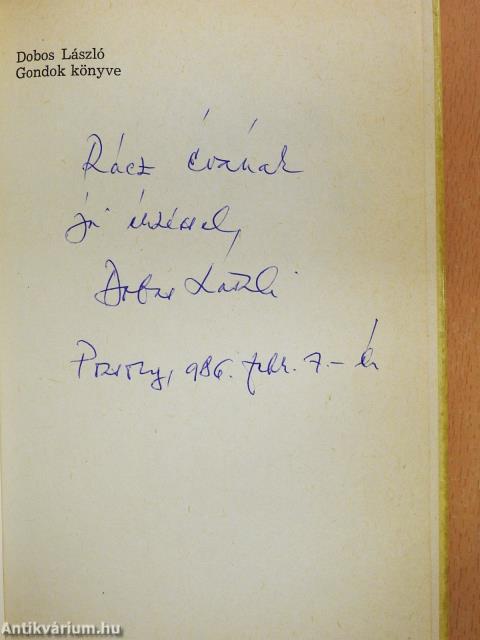 Dobos László
Gondok könyve
Rácz Évának
jó érzéssel,
Dobos László
Pozsony, 986. febr. 7.-én
Antikvárium.hu